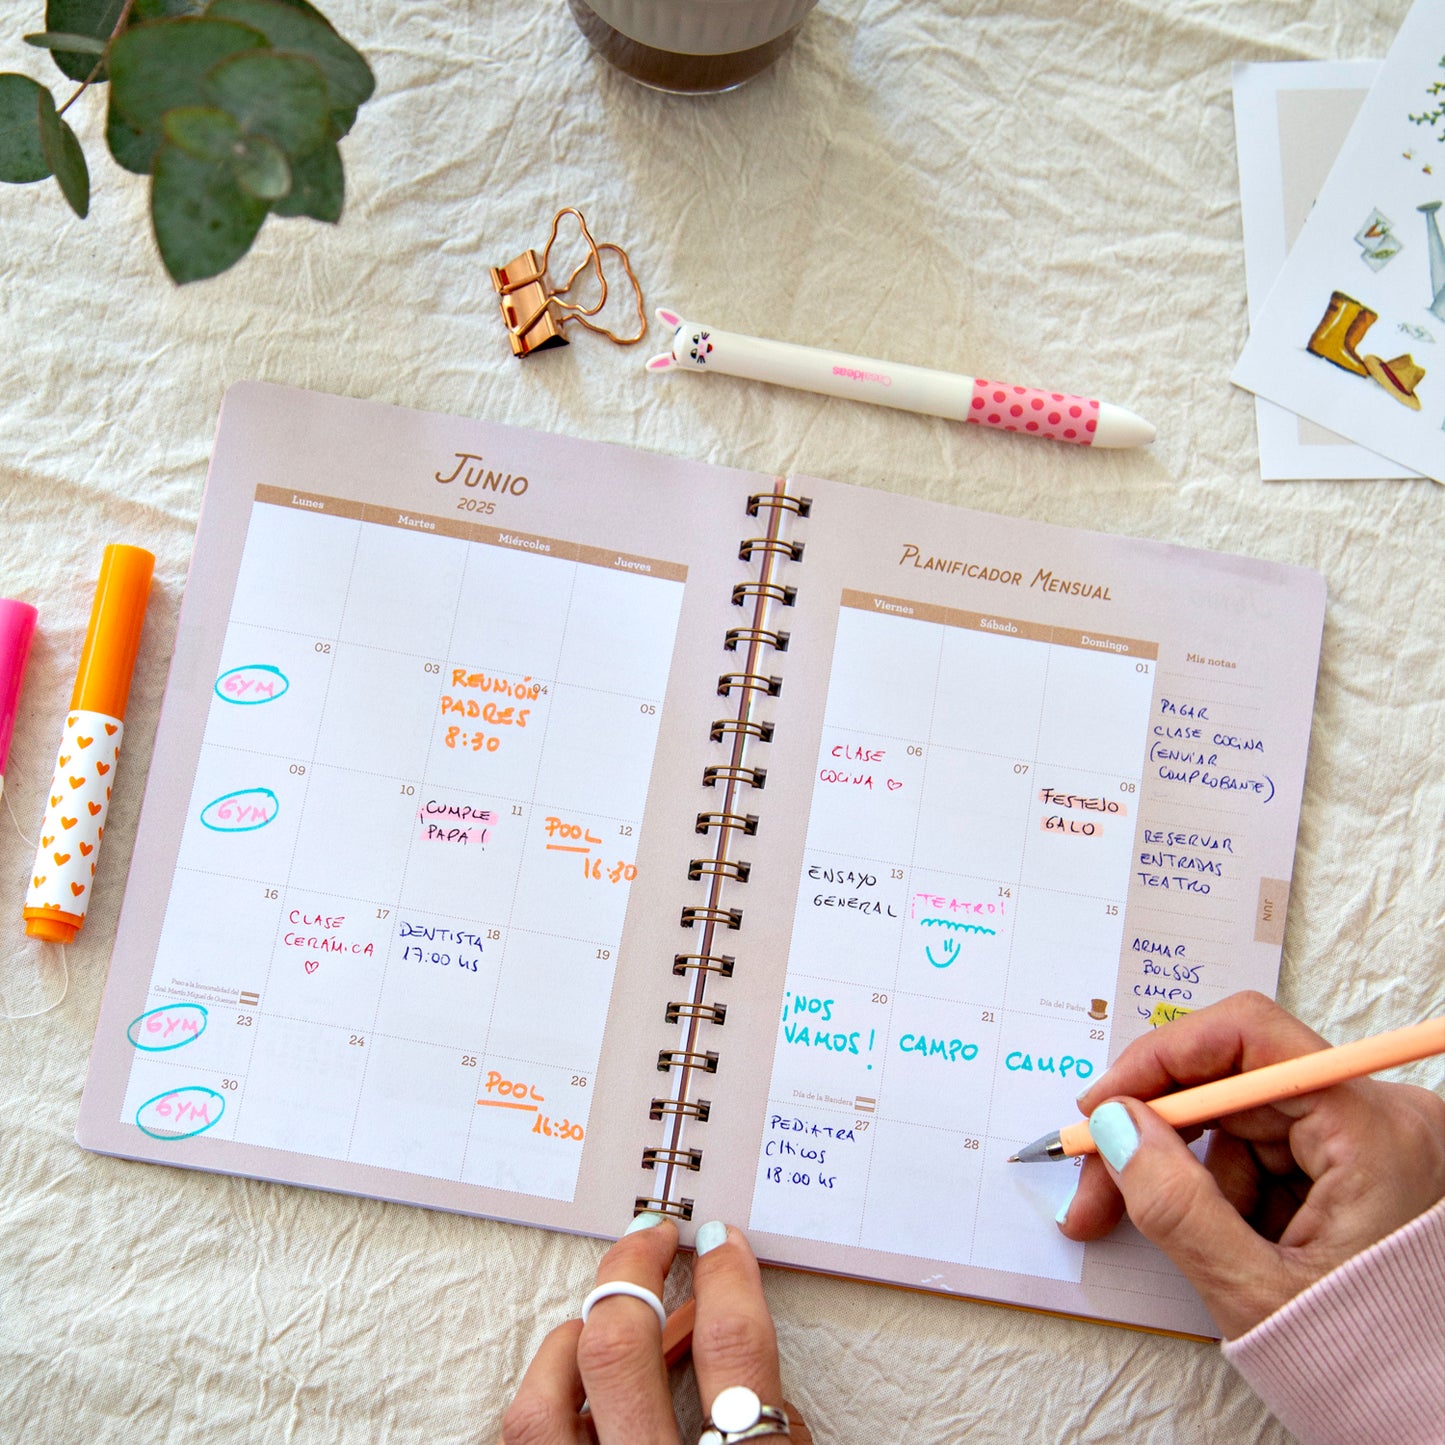 CasaIdeas
JUNIO
2025
Lunes Martes Miércoles Jueves
02 03 04 05
GYM
REUNIÓN
PADRES
8:30
09 10 11 12
GYM
¡CUMPLE
PAPÁ!
POOL
16:30
16 17 18 19
CLASE
CERÁMICA
DENTISTA
17:00 HS
Paso a la Inmortalidad del
Gral. Martín Miguel de Guemes
23 24 25 26
GYM
POOL
16:30
30
GYM
PLANIFICADOR MENSUAL
Viernes Sábado Domingo
01
06 07 08
CLASE
COCINA
FESTEJO
GALO
13 14 15
ENSAYO
GENERAL
¡TEATRO!
Día del Padre
20 21 22
¡NOS
VAMOS!
CAMPO
CAMPO
Día de la Bandera
27 28
PEDIATRA
CHICOS
18:00 HS
Mis notas
PAGAR
CLASE COCINA
(ENVIAR
COMPROBANTE)
RESERVAR
ENTRADAS
TEATRO
ARMAR
BOLSOS
CAMPO
JUN